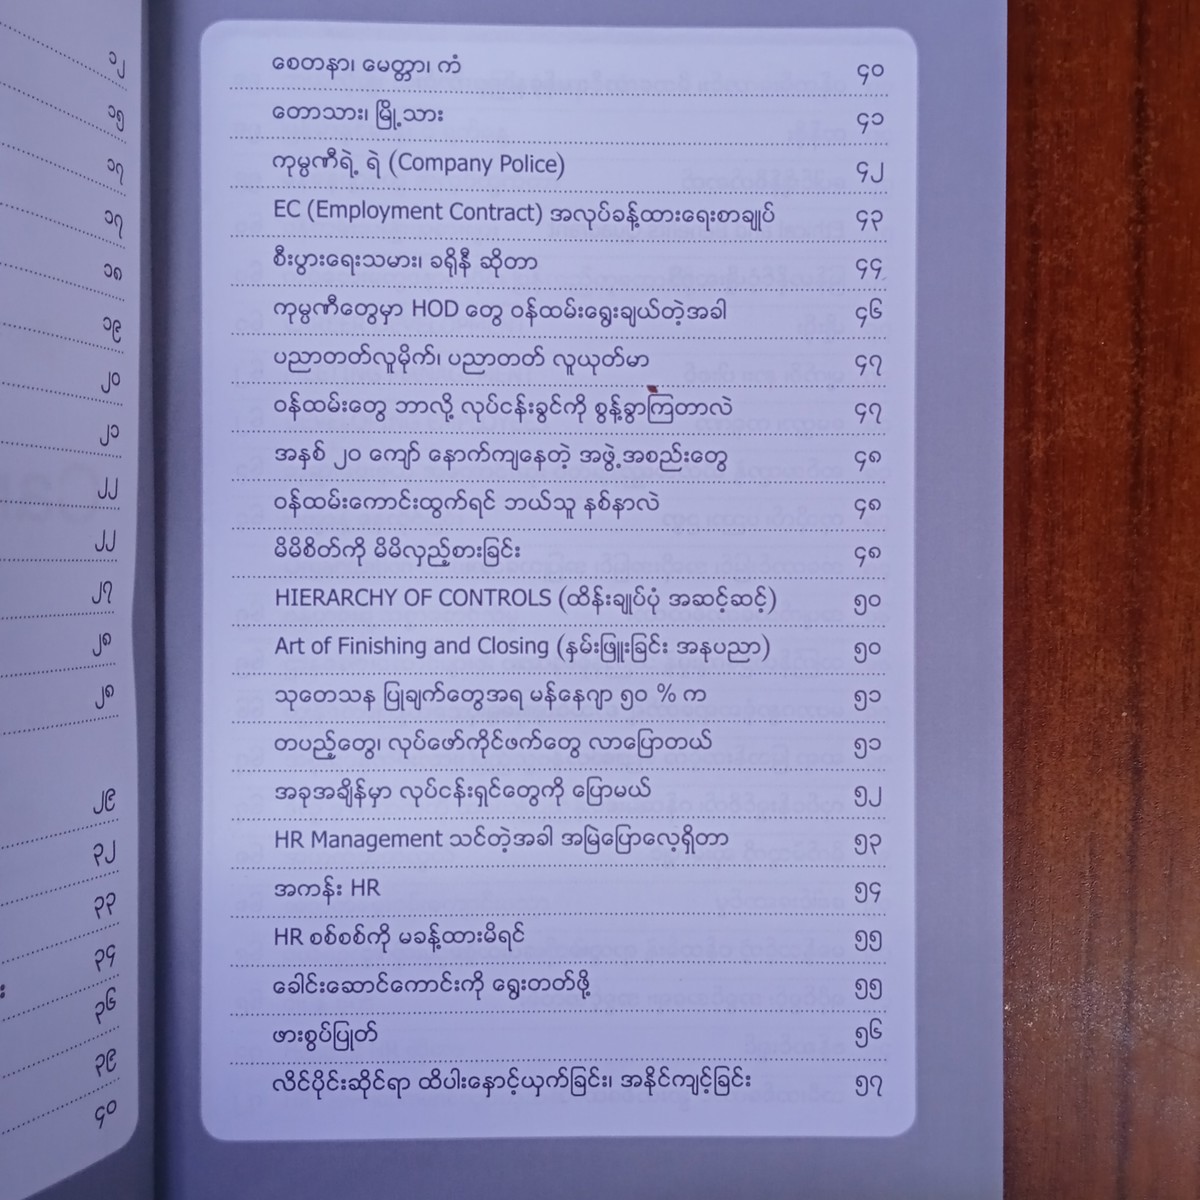 ၁၂
၁၅
၁၇
၁၇
၁၈
၁၉
၂၀
၂၁
၂၂
၂၂
၂၇
၂၈
၂၈
၂၉
၃၂
၃၃
၃၄
၃၆
၃၉
၄၀
စေတနာ၊ မေတ္တာ၊ ကံ ၄၀
တောသား၊ မြို့သား ၄၁
ကုမ္ပဏီရဲ့ ရဲ (Company Police) ၄၂
EC (Employment Contract) အလုပ်ခန့်ထားရေးစာချုပ် ၄၃
စီးပွားရေးသမား၊ ခရိုနီ ဆိုတာ ၄၄
ကုမ္ပဏီတွေမှာ HOD တွေ ဝန်ထမ်းရွေးချယ်တဲ့အခါ ၄၆
ပညာတတ်လူမိုက်၊ ပညာတတ် လူယုတ်မာ ၄၇
ဝန်ထမ်းတွေ ဘာလို့ လုပ်ငန်းခွင်ကို စွန့်ခွာကြတာလဲ ၄၇
အနှစ် ၂၀ ကျော် နောက်ကျနေတဲ့ အဖွဲ့အစည်းတွေ ၄၈
ဝန်ထမ်းကောင်းထွက်ရင် ဘယ်သူ နစ်နာလဲ ၄၈
မိမိစိတ်ကို မိမိလှည့်စားခြင်း ၄၈
HIERARCHY OF CONTROLS (ထိန်းချုပ်ပုံ အဆင့်ဆင့်) ၅၀
Art of Finishing and Closing (နှမ်းဖြူးခြင်း အနုပညာ) ၅၀
သုတေသန ပြုချက်တွေအရ မန်နေဂျာ ၅၀ % က ၅၁
တပည့်တွေ၊ လုပ်ဖော်ကိုင်ဖက်တွေ လာပြောတယ် ၅၁
အခုအချိန်မှာ လုပ်ငန်းရှင်တွေကို ပြောမယ် ၅၂
HR Management သင်တဲ့အခါ အမြဲပြောလေ့ရှိတာ ၅၃
အကန်း HR ၅၄
HR စစ်စစ်ကို မခန့်ထားမိရင် ၅၅
ခေါင်းဆောင်ကောင်းကို ရွေးတတ်ဖို့ ၅၅
ဖားစွပ်ပြုတ် ၅၆
လိင်ပိုင်းဆိုင်ရာ ထိပါးနှောင့်ယှက်ခြင်း၊ အနိုင်ကျင့်ခြင်း ၅၇